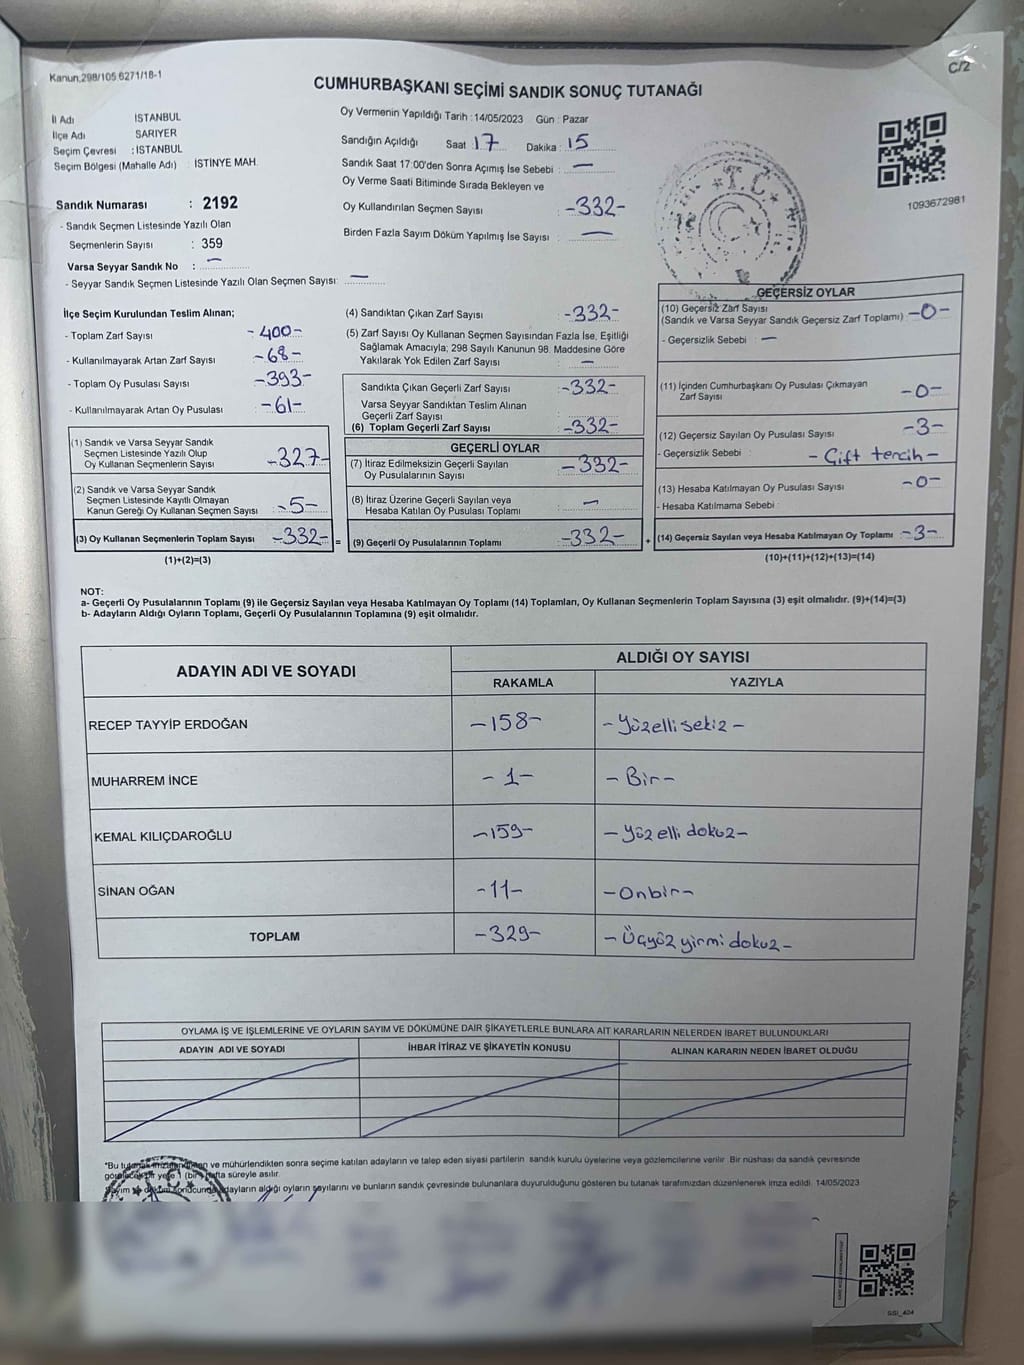 Kanun;298/105.6271/18-1
C/2
CUMHURBAŞKANI SEÇİMİ SANDIK SONUÇ TUTANAĞI
İl Adı İSTANBUL
İlçe Adı SARIYER
Seçim Çevresi : İSTANBUL
Seçim Bölgesi (Mahalle Adı) : İSTİNYE MAH.
Sandık Numarası : 2192
- Sandık Seçmen Listesinde Yazılı Olan
Seçmenlerin Sayısı : 359
Varsa Seyyar Sandık No : –
- Seyyar Sandık Seçmen Listesinde Yazılı Olan Seçmen Sayısı: –
Oy Vermenin Yapıldığı Tarih : 14/05/2023 Gün : Pazar
Sandığın Açıldığı Saat : 17 Dakika : 15
Sandık Saat 17:00'den Sonra Açımış İse Sebebi : –
Oy Verme Saati Bitiminde Sırada Bekleyen ve
Oy Kullandırılan Seçmen Sayısı : -332-
Birden Fazla Sayım Döküm Yapılmış İse Sayısı : –
T.C.
1093672981
İlçe Seçim Kurulundan Teslim Alınan;
- Toplam Zarf Sayısı -400-
- Kullanılmayarak Artan Zarf Sayısı -68-
- Toplam Oy Pusulası Sayısı -393-
- Kullanılmayarak Artan Oy Pusulası -61-
(1) Sandık ve Varsa Seyyar Sandık
Seçmen Listesinde Yazılı Olup
Oy Kullanan Seçmenlerin Sayısı -327-
(2) Sandık ve Varsa Seyyar Sandık
Seçmen Listesinde Kayıtlı Olmayan
Kanun Gereği Oy Kullanan Seçmen Sayısı -5-
(3) Oy Kullanan Seçmenlerin Toplam Sayısı -332- =
(1)+(2)=(3)
(4) Sandıktan Çıkan Zarf Sayısı -332-
(5) Zarf Sayısı Oy Kullanan Seçmen Sayısından Fazla İse, Eşitliği
Sağlamak Amacıyla; 298 Sayılı Kanunun 98. Maddesine Göre
Yakılarak Yok Edilen Zarf Sayısı : –
Sandıkta Çıkan Geçerli Zarf Sayısı -332-
Varsa Seyyar Sandıktan Teslim Alınan
Geçerli Zarf Sayısı
(6) Toplam Geçerli Zarf Sayısı -332-
GEÇERLİ OYLAR
(7) İtiraz Edilmeksizin Geçerli Sayılan
Oy Pusulalarının Sayısı -332-
(8) İtiraz Üzerine Geçerli Sayılan veya
Hesaba Katılan Oy Pusulası Toplamı –
(9) Geçerli Oy Pusulalarının Toplamı -332- +
GEÇERSİZ OYLAR
(10) Geçersiz Zarf Sayısı
(Sandık ve Varsa Seyyar Sandık Geçersiz Zarf Toplamı) : -0-
- Geçersizlik Sebebi : –
(11) İçinden Cumhurbaşkanı Oy Pusulası Çıkmayan
Zarf Sayısı -0-
(12) Geçersiz Sayılan Oy Pusulası Sayısı -3-
- Geçersizlik Sebebi : - Çift tercih -
(13) Hesaba Katılmayan Oy Pusulası Sayısı -0-
- Hesaba Katılmama Sebebi :
(14) Geçersiz Sayılan veya Hesaba Katılmayan Oy Toplamı -3-
(10)+(11)+(12)+(13)=(14)
NOT:
a- Geçerli Oy Pusulalarının Toplamı (9) ile Geçersiz Sayılan veya Hesaba Katılmayan Oy Toplamı (14) Toplamları, Oy Kullanan Seçmenlerin Toplam Sayısına (3) eşit olmalıdır. (9)+(14)=(3)
b- Adayların Aldığı Oyların Toplamı, Geçerli Oy Pusulalarının Toplamına (9) eşit olmalıdır.
ADAYIN ADI VE SOYADI
ALDIĞI OY SAYISI
RAKAMLA YAZIYLA
RECEP TAYYİP ERDOĞAN -158- -Yüzellisekiz-
MUHARREM İNCE -1- -Bir-
KEMAL KILIÇDAROĞLU -159- -Yüz elli dokuz-
SİNAN OĞAN -11- -Onbir-
TOPLAM -329- -Üçyüz yirmi dokuz-
OYLAMA İŞ VE İŞLEMLERİNE VE OYLARIN SAYIM VE DÖKÜMÜNE DAİR ŞİKAYETLERLE BUNLARA AİT KARARLARIN NELERDEN İBARET BULUNDUKLARI
ADAYIN ADI VE SOYADI İHBAR İTİRAZ VE ŞİKAYETİN KONUSU ALINAN KARARIN NEDEN İBARET OLDUĞU
*Bu ve mühürlendikten sonra seçime katılan adayların ve talep eden siyasi partilerin sandık kurulu üyelerine veya gözlemcilerine verilir. Bir nüshası da sandık çevresinde
bir yere 1 (bir) hafta süreyle asılır.
Sayım ve döküm sonucunda adayların aldığı oyların sayılarını ve bunların sandık çevresinde bulunanlara duyurulduğunu gösteren bu tutanak tarafımızdan düzenlenerek imza edildi. 14/05/2023
SSI_404